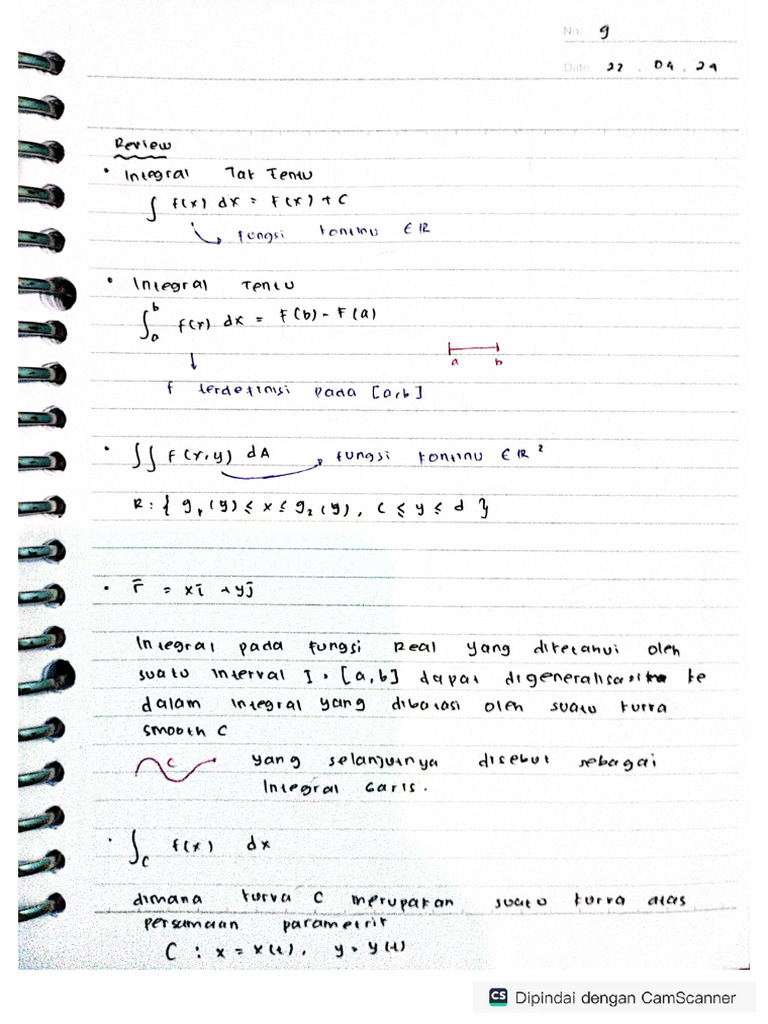 No. 9
Date 22 . 04 . 24
Review
• Integral Tak Tentu
∫ f(x) dx = F(x) + C
fungsi kontinu ∈ ℝ
• Integral Tentu
∫ₐᵇ f(x) dx = F(b) - F(a)
a b
f terdefinisi pada [a,b]
• ∫∫ F(x,y) dA fungsi kontinu ∈ ℝ²
R : { g₁(y) ≤ x ≤ g₂(y), c ≤ y ≤ d }
• r̄ = xī + yj̄
Integral pada fungsi Real yang diketahui oleh
suatu interval I = [a,b] dapat digeneralisasikan ke
dalam integral yang dibatasi oleh suatu kurva
smooth C
C yang selanjutnya disebut sebagai
Integral Garis.
• ∫_C f(x) dx
dimana kurva C merupakan suatu kurva atas
persamaan parametrik
C : x = x(t), y = y(t)
CS Dipindai dengan CamScanner